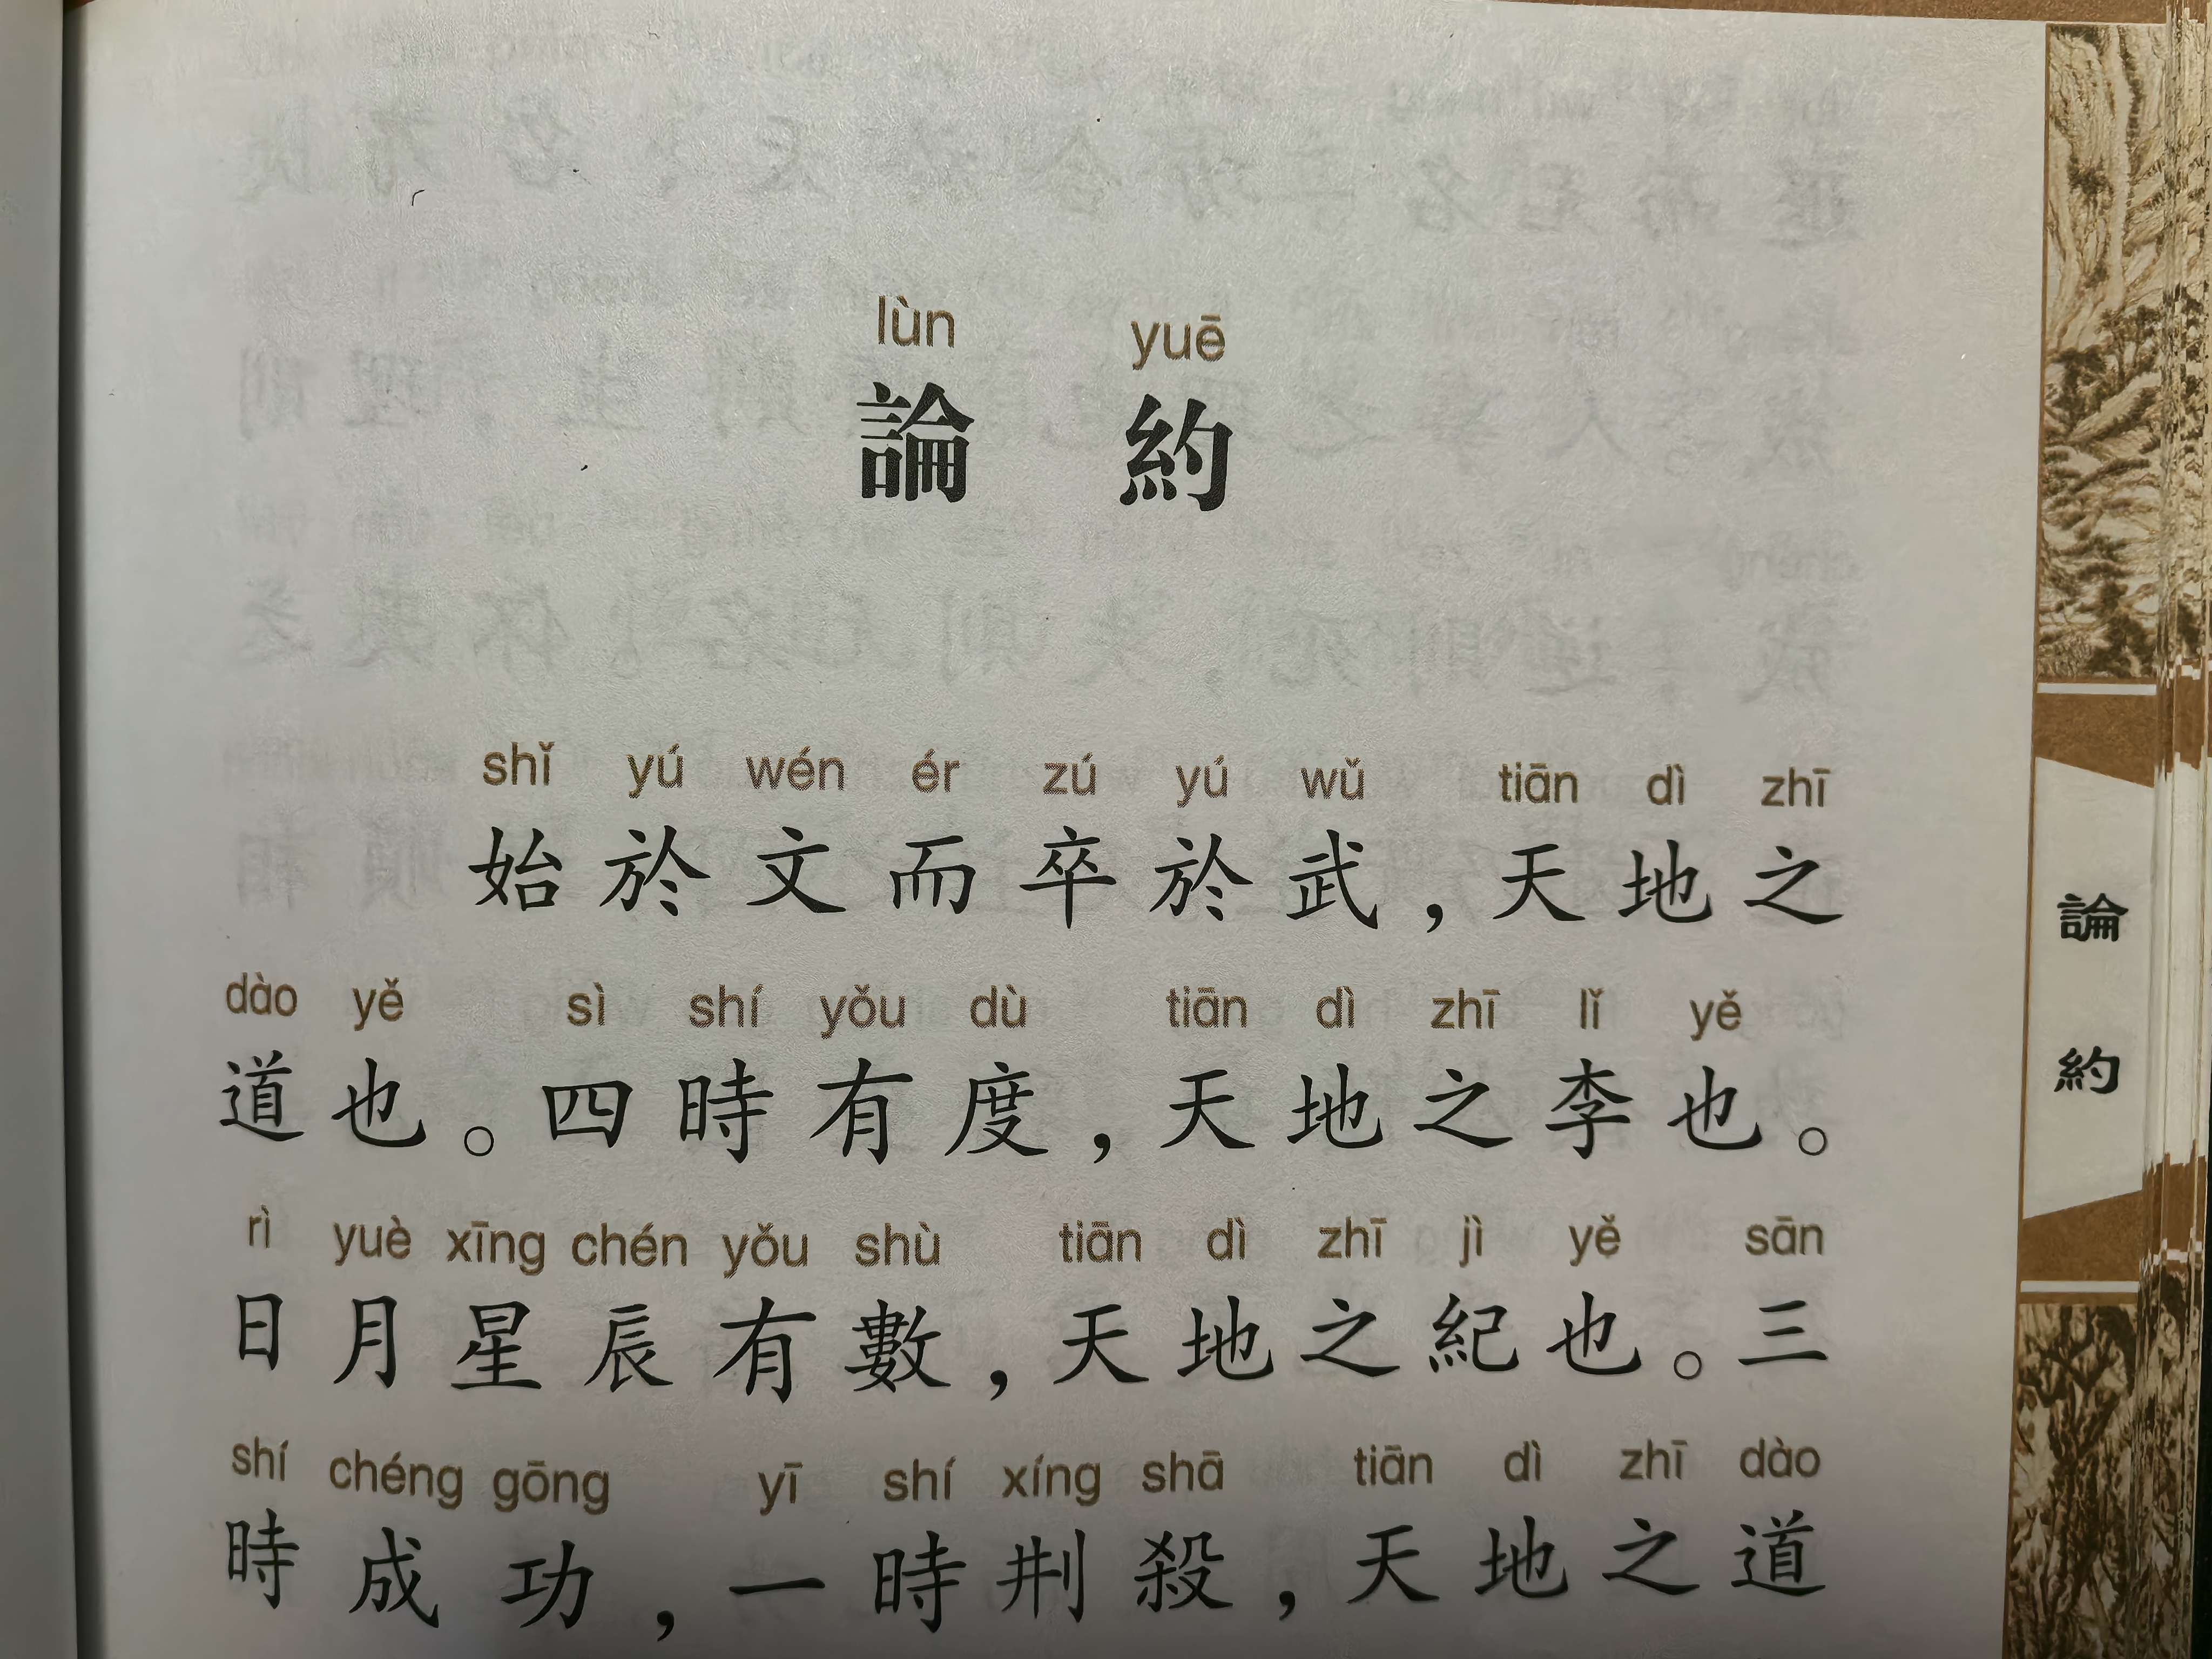 lùn yuē
論 約
shǐ yú wén ér zú yú wǔ tiān dì zhī
始於文而卒於武，天地之
dào yě sì shí yǒu dù tiān dì zhī lǐ yě
道也。四時有度，天地之李也。
rì yuè xīng chén yǒu shù tiān dì zhī jì yě sān
日月星辰有數，天地之紀也。三
shí chéng gōng yī shí xíng shā tiān dì zhī dào
時成功，一時刑殺，天地之道
論
約